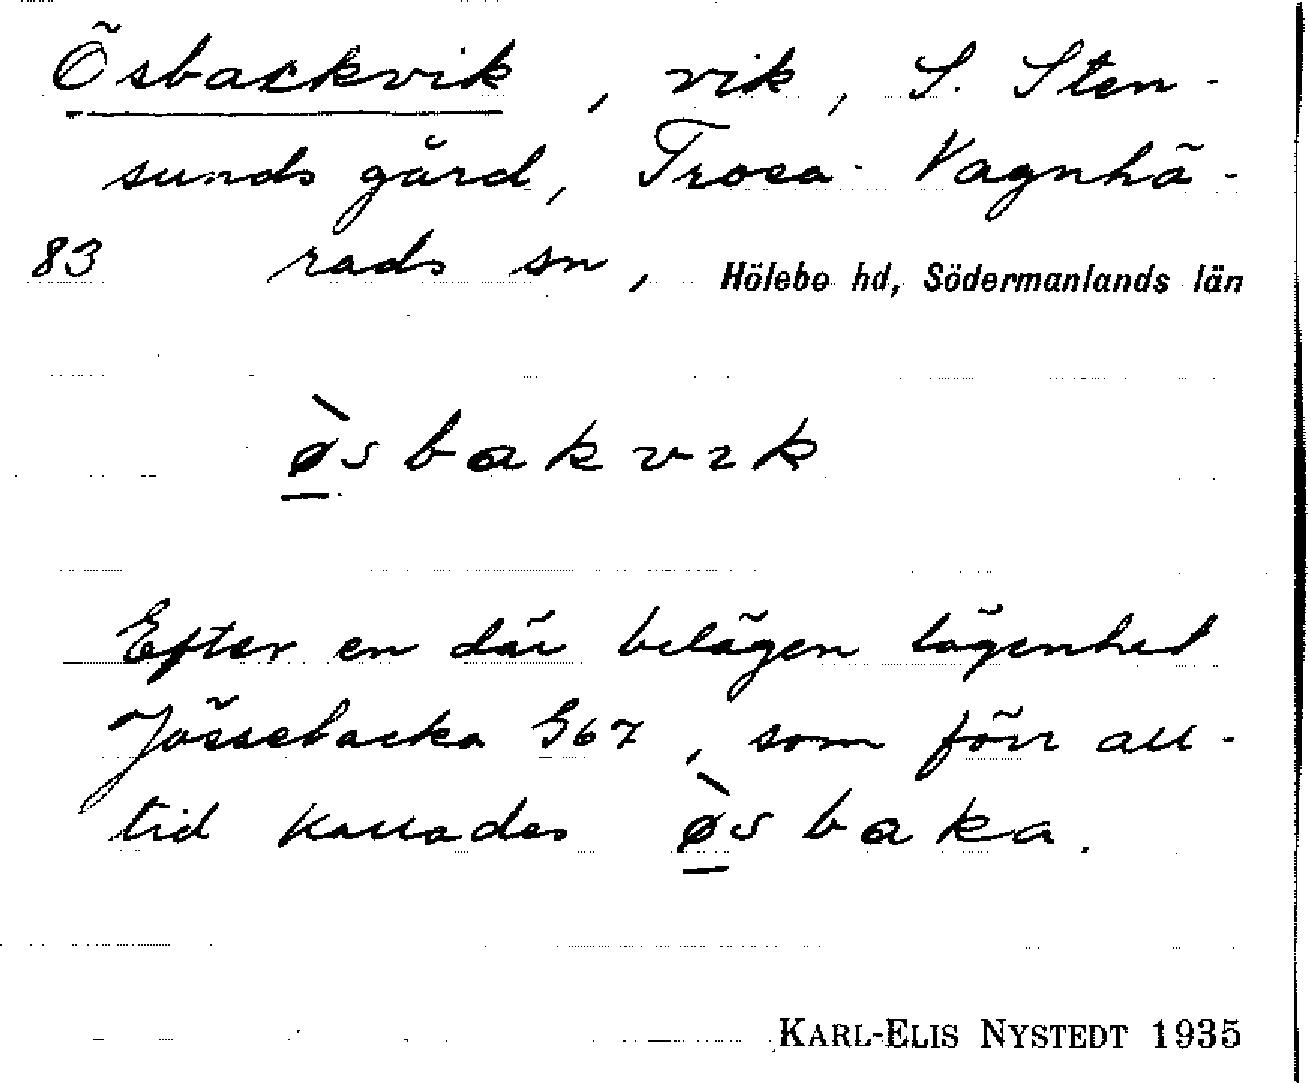 Ösbackvik, vik, S. Sten-
sunds gård, Trosa-Vagnhä-
83 rads sn, Hölebo hd, Södermanlands län
ø̀sbakvɩk
Efter en där belägen lägenhet
Jössebacka 367, som förr all-
tid kallades ø̀sbaka.
KARL-ELIS NYSTEDT 1935